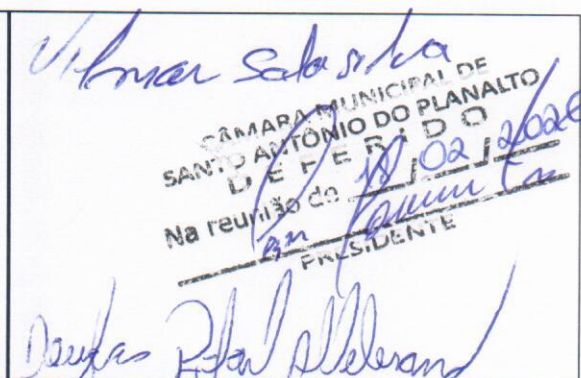 Vilmar
CÂMARA MUNICIPAL DE
SANTO ANTÔNIO DO PLANALTO
DEFERIDO
Na reunião do 18/02/202
PRESIDENTE
Douglas Rafael